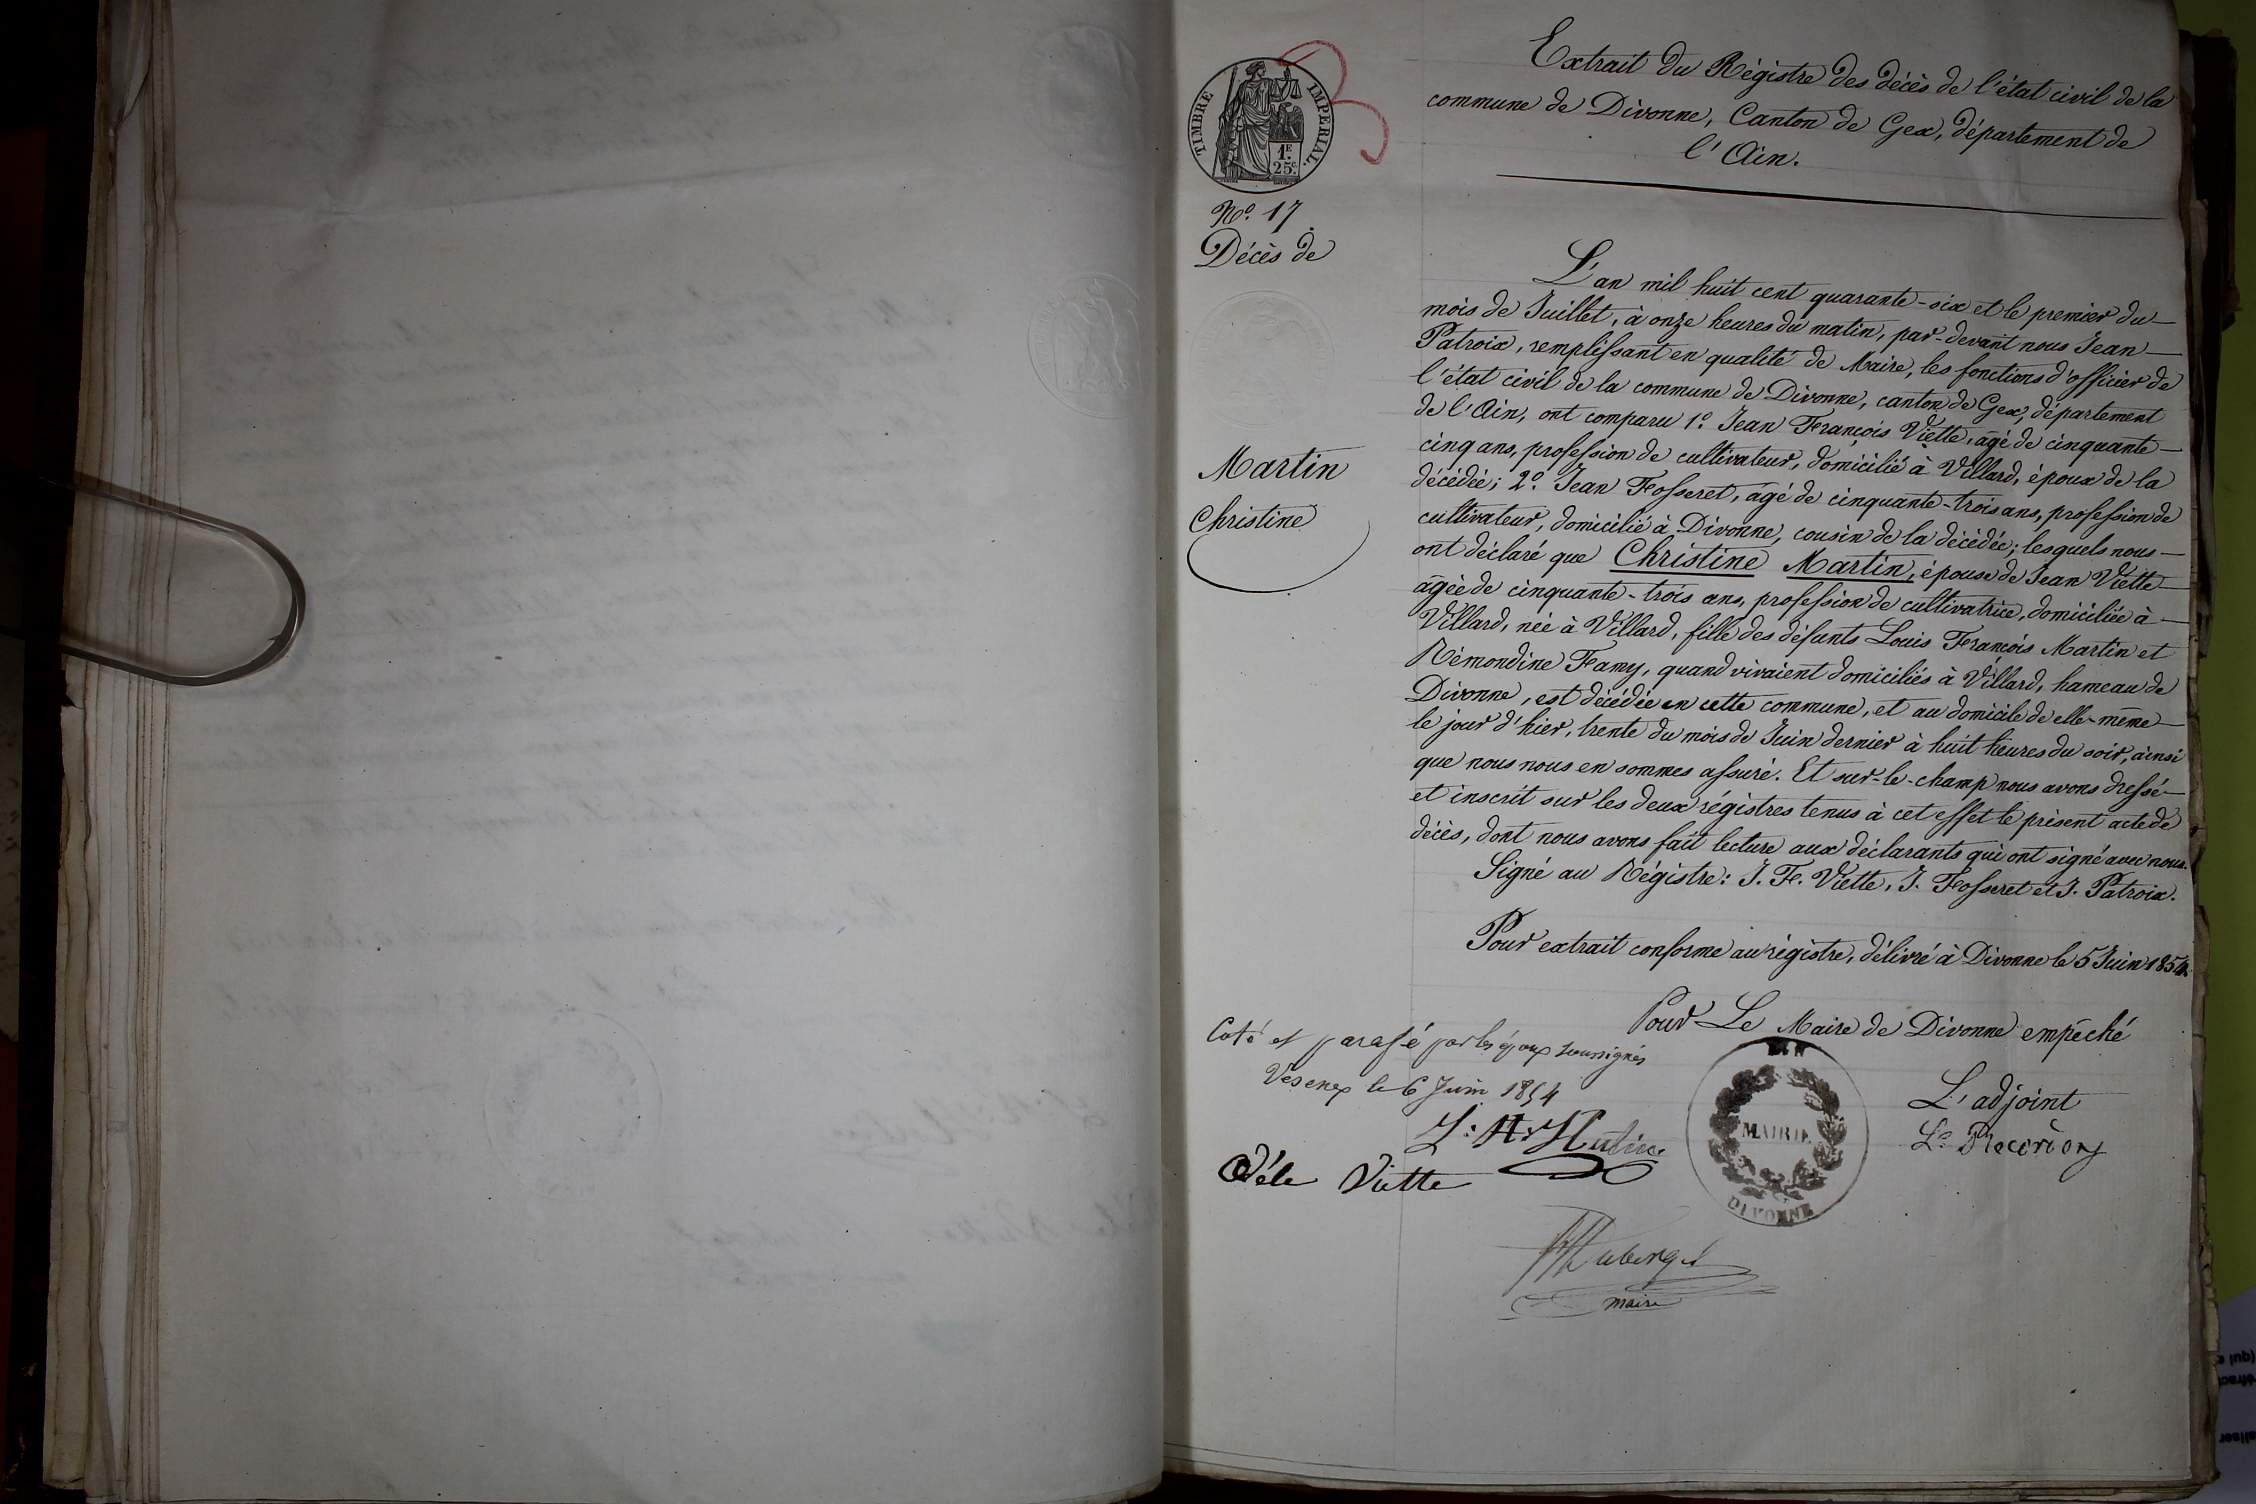 Extrait du Régistre des décès de l'état civil de la
commune de Divonne, Canton de Gex, département de
l'Ain.
TIMBRE IMPÉRIAL.
1F.
25c.
No. 17
Décès de
Martin
Christine
L'an mil huit cent quarante-six et le premier du
mois de Juillet, à onze heures du matin, par-devant nous Jean
Patroix, remplissant en qualité de Maire, les fonctions d'officier de
l'état civil de la commune de Divonne, canton de Gex, département
de l'Ain, ont comparu 1o. Jean François Viette, âgé de cinquante-
cinq ans, profession de cultivateur, domicilié à Villard, époux de la
décédée; 2o. Jean Fosseret, âgé de cinquante-trois ans, profession de
cultivateur, domicilié à Divonne, cousin de la décédée; lesquels nous
ont déclaré que Christine Martin, épouse de Jean Viette
âgée de cinquante-trois ans, profession de cultivatrice, domiciliée à
Villard, née à Villard, fille des défunts Louis François Martin et
Rémondine Famy, quand vivaient domiciliés à Villard, hameau de
Divonne, est décédée en cette commune, et au domicile de elle-même
le jour d'hier, trente du mois de Juin dernier à huit heures du soir, ainsi
que nous nous en sommes assuré. Et sur-le-champ nous avons dressé
et inscrit sur les deux régistres tenus à cet effet le présent acte de
décès, dont nous avons fait lecture aux déclarants qui ont signé avec nous.
Signé au Régistre: J. F. Viette, J. Fosseret et J. Patroix.
Pour extrait conforme au régistre, délivré à Divonne le 5 Juin 1854.
Pour Le Maire de Divonne empêché
L'adjoint
Coté et parafé par les époux soussignés
Vesenex le 6 Juin 1854
Viette
AIN
MAIRIE
DIVONNE
maire